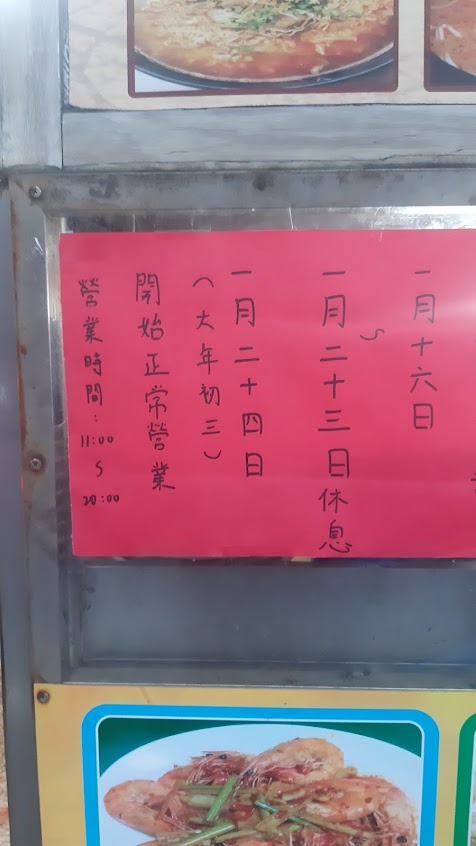 一月十六日
〜
一月二十三日休息
一月二十四日
(大年初三)
開始正常營業
營業時間:
11:00
〜
20:00